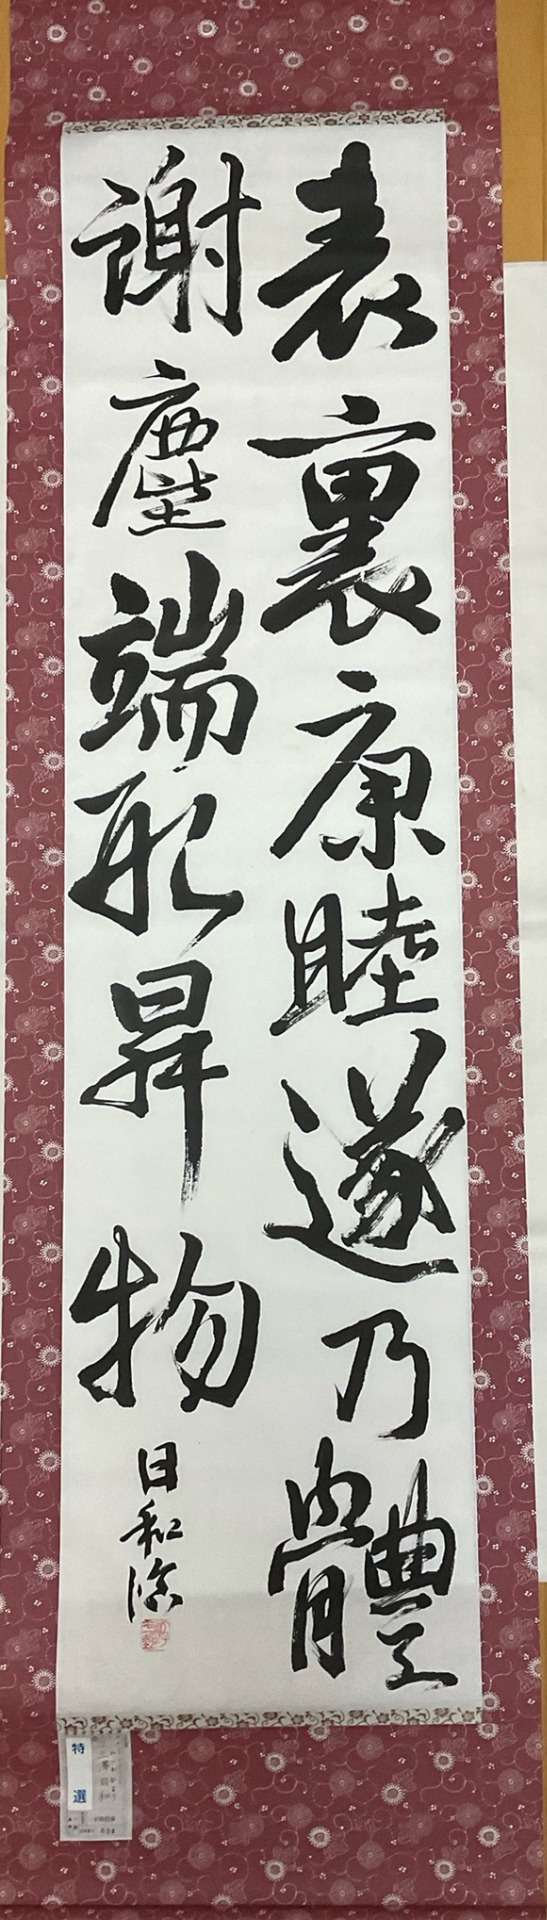 表裏康睦遂乃體
謝塵端形昇物
日和臨
特選